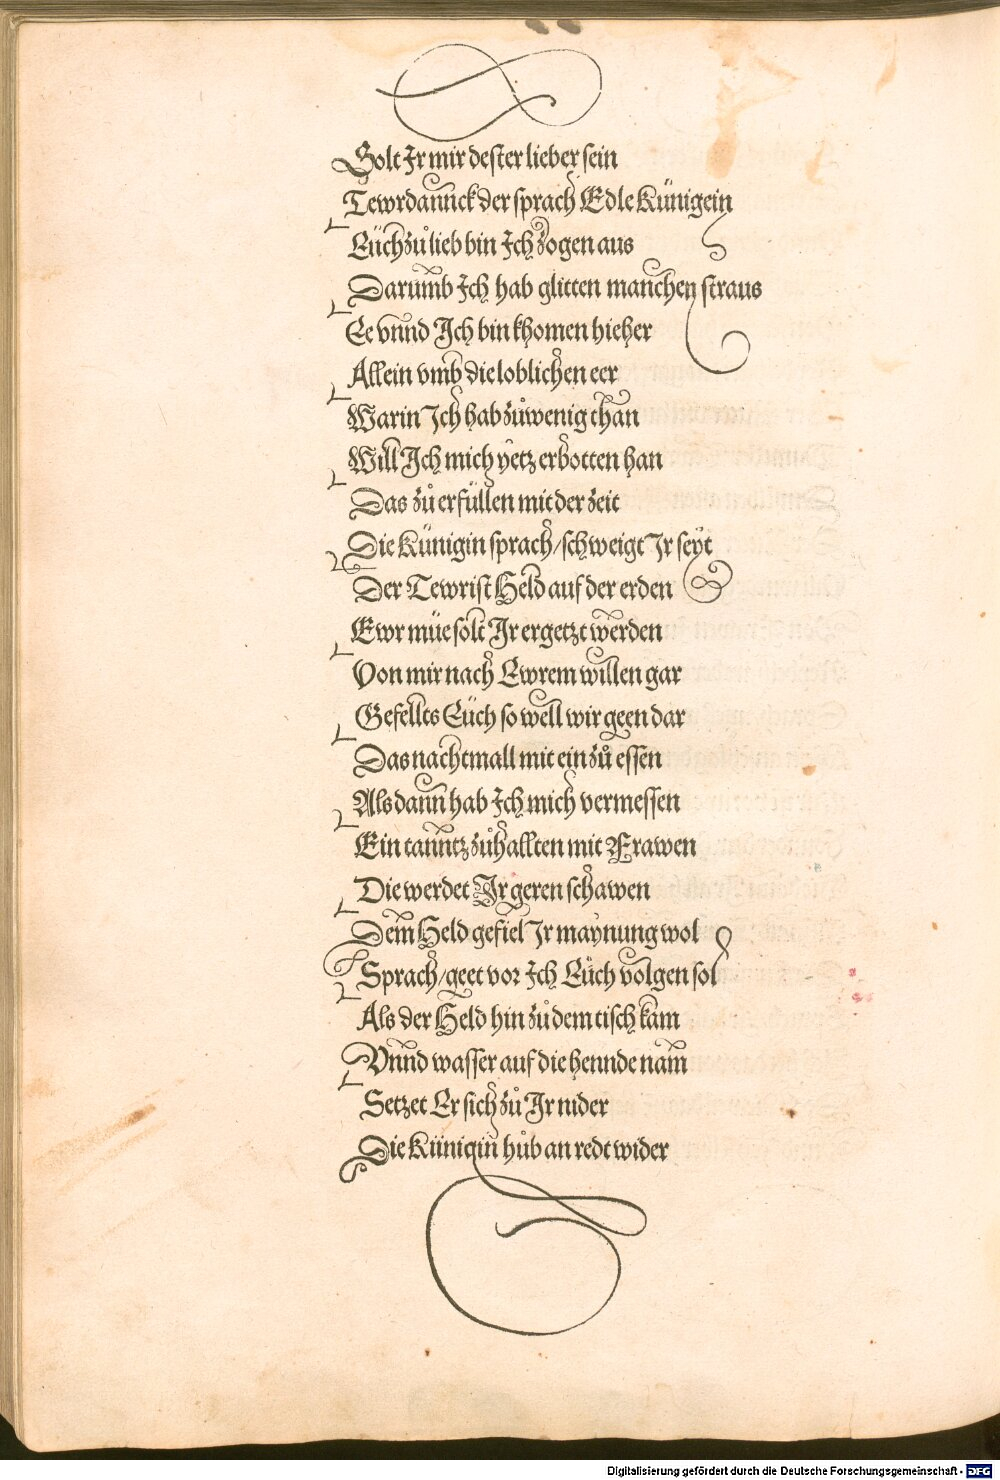 Solt Ir mir dester lieber sein
Tewrdannck der sprach Edle Künigein
Eüch zů lieb bin Ich zogen aus
Darumb Ich hab glitten manchen straus
Ee vnnd Ich bin khomen hieher
Allein vmb die loblichen eer
Warin Ich hab zůwenig than
Will Ich mich yetz erbotten han
Das zů erfüllen mit der zeit
Die Künigin sprach / schweigt Ir seyt
Der Tewrist Held auf der erden
Ewr müe solt Ir ergetzt werden
Von mir nach Ewrem willen gar
Gefellts Eüch so well wir geen dar
Das nachtmall mit ein zů essen
Als dann hab Ich mich vermessen
Ein tanntz zůhallten mit Frawen
Die werdet Ir geren schawen
Dem Held gefiel Ir maynung wol
Sprach / geet vor Ich Eüch volgen sol
Als der Held hin zů dem tisch kam
Vnnd wasser auf die hennde nam
Setzet Er sich zů Ir nider
Die Künigin hůb an redt wider
Digitalisierung gefördert durch die Deutsche Forschungsgemeinschaft - DFG